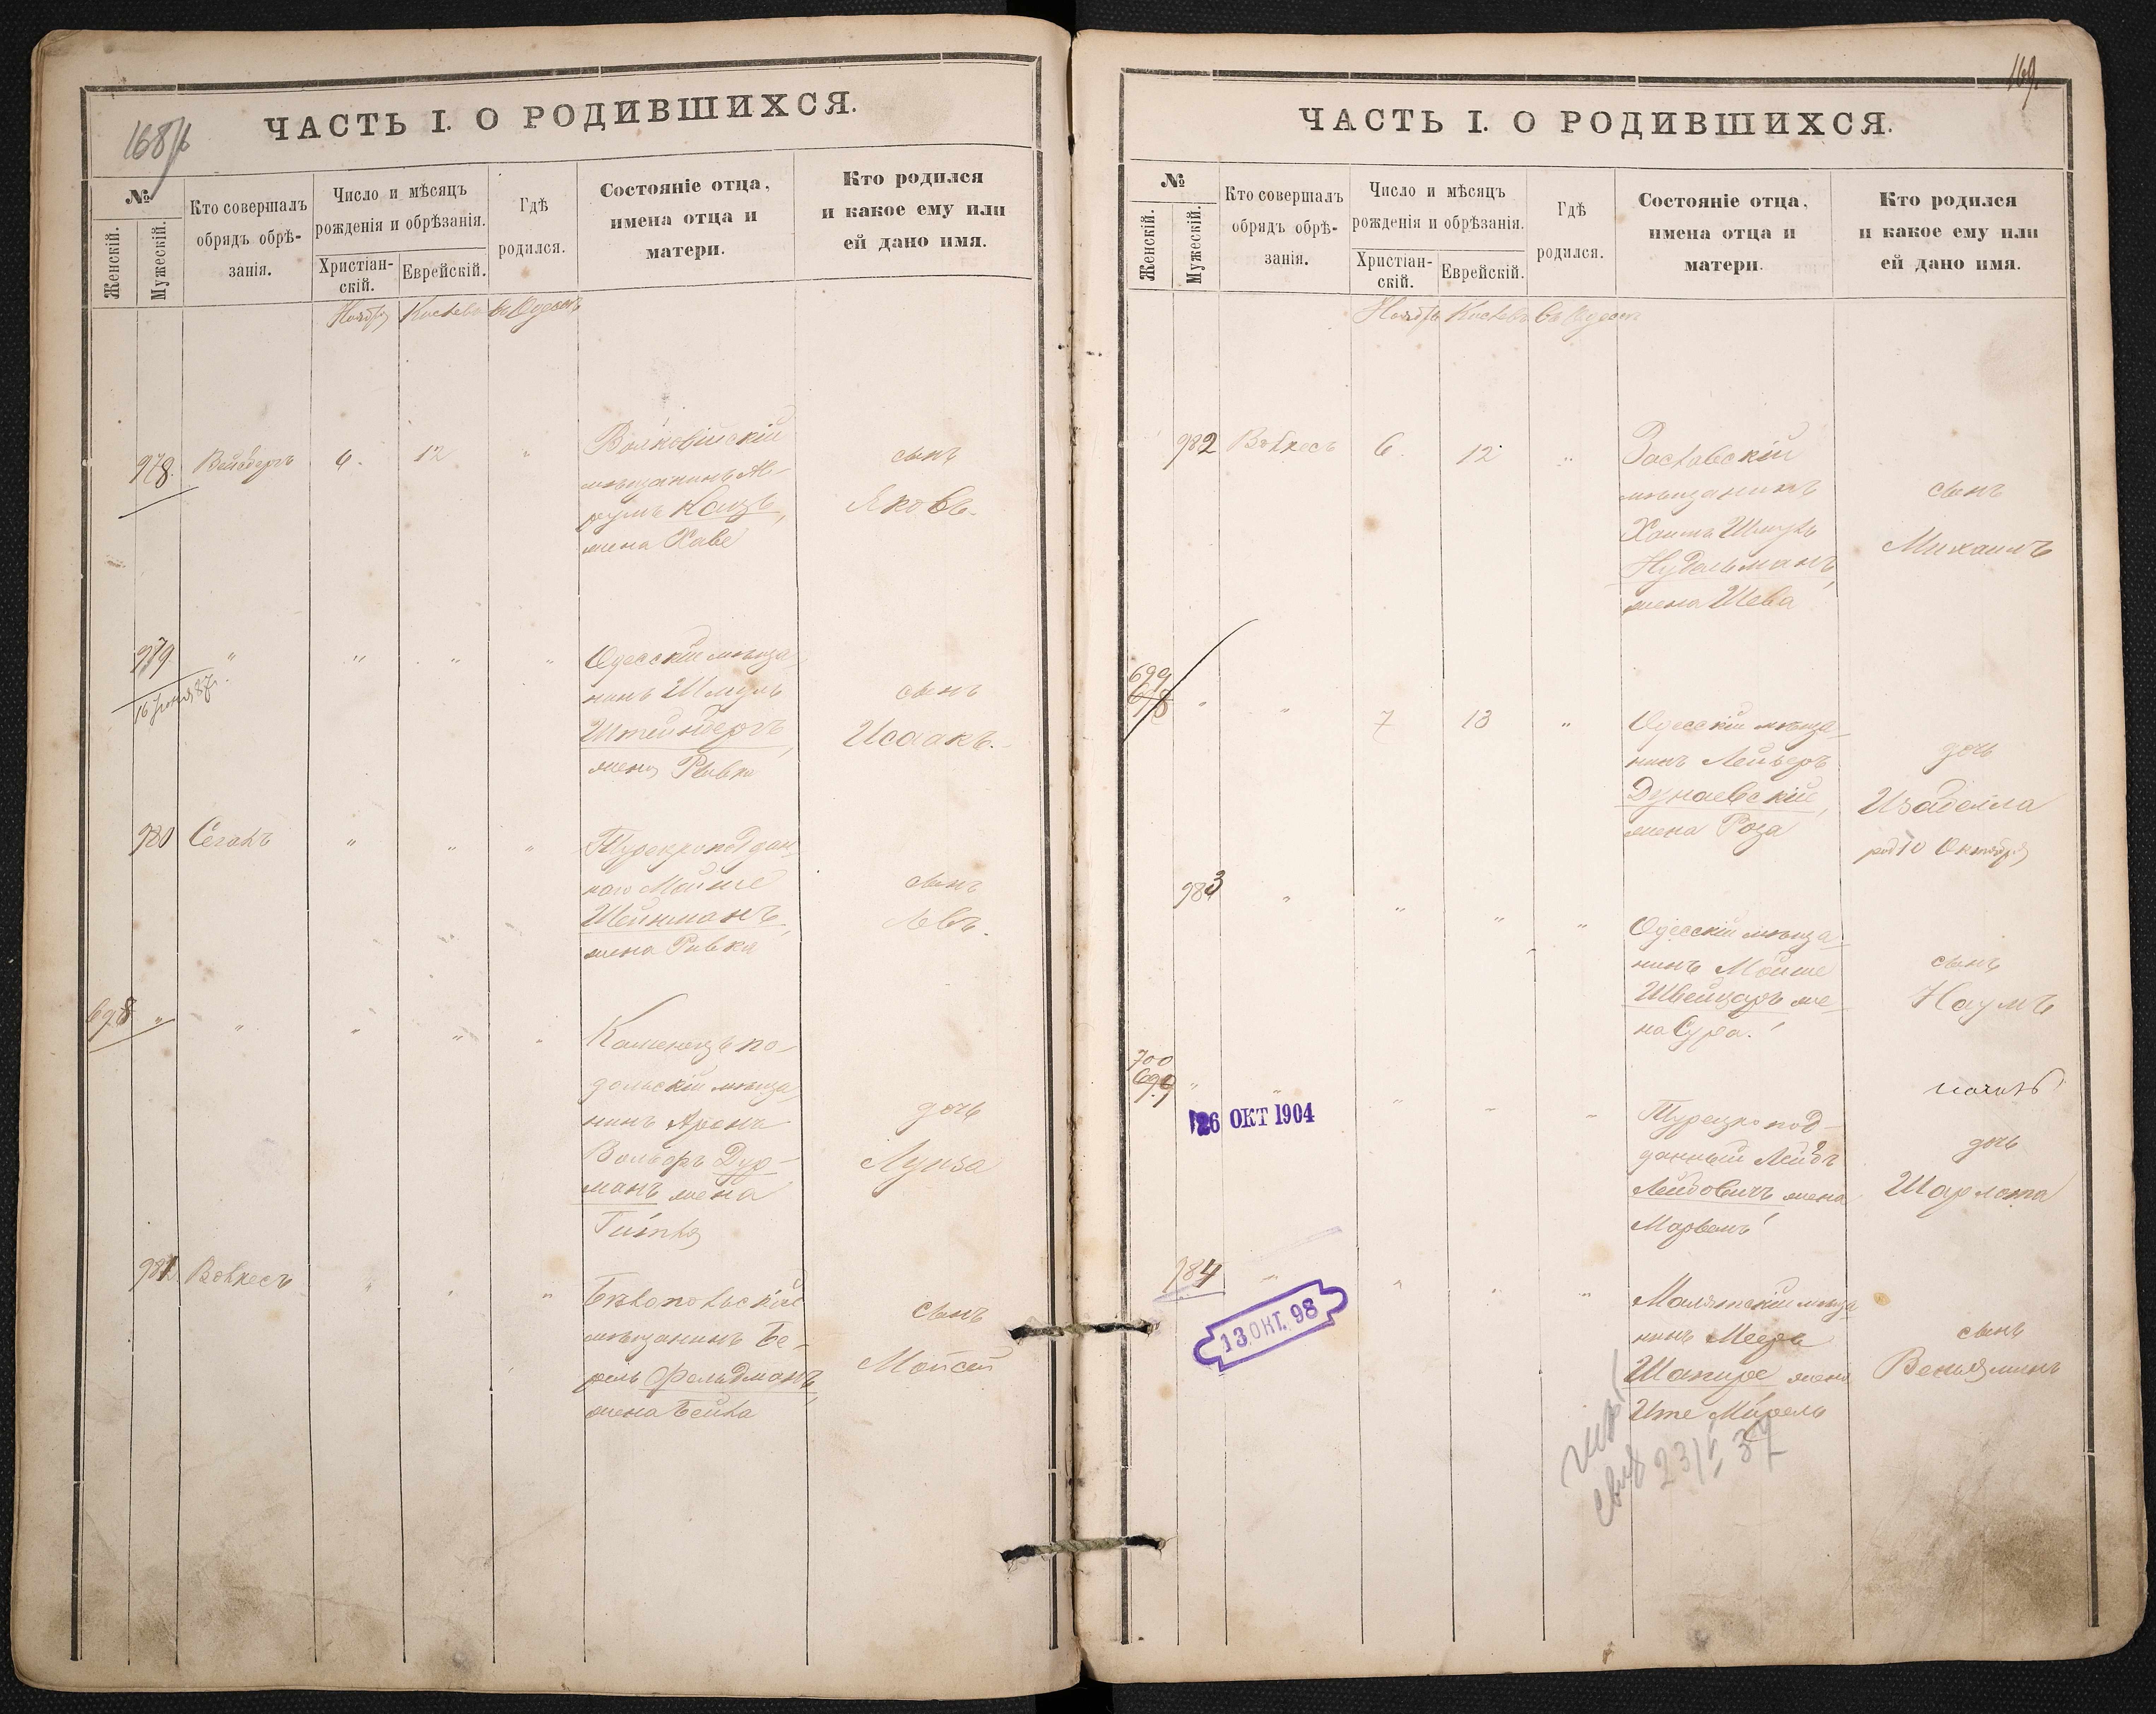 168/б
ЧАСТЬ I. О РОДИВШИХСЯ.
№
Женскій.
Мужескій.
Кто совершалъ
обрядъ обрѣ-
занія.
Число и мѣсяцъ
рожденія и обрѣзанія.
Христіан-
скій.
Еврейскій.
Гдѣ
родился.
Состояніе отца,
имена отца и
матери.
Кто родился
и какое ему или
ей дано имя.
Ноябрь Кислевъ въ Одессѣ
978. Вейсбергъ 6. 12 "
мѣщанинъ Аб-
румъ Кацъ,
жена Хаве
сынъ
Яковъ.
979 " " " "
16 Іюня 87 г.
Одесскій мѣща-
нинъ Шмуль
Штейнбергъ,
жена Ривка
сынъ
Исаакъ.
980 Сегалъ " " "
Турецкоподдан-
наго Мойше
Шейнманъ,
жена Ривка
сынъ
Левъ.
698 " " " " "
Каменецъ по-
дольскій мѣща-
нинъ Аронъ
Вольфъ Дур-
манъ жена
Гитля
дочь
Луиза
981 Волкесъ " " "
Бѣлопольскій
мѣщанинъ Бе-
рель Фельдманъ,
жена Бейла
сынъ
Мойсей
169.
ЧАСТЬ I. О РОДИВШИХСЯ.
№
Женскій.
Мужескій.
Кто совершалъ
обрядъ обрѣ-
занія.
Число и мѣсяцъ
рожденія и обрѣзанія.
Христіан-
скій.
Еврейскій.
Гдѣ
родился.
Состояніе отца,
имена отца и
матери.
Кто родился
и какое ему или
ей дано имя.
Ноябрь Кислевъ въ Одессѣ
982 Волкесъ 6. 12. "
Заславскій
мѣщанинъ
Хаимъ Шмуль
Нудельманъ,
жена Шева
сынъ
Михаилъ
699
698 " " 7 13 "
Одесскій мѣща-
нинъ Лейзеръ
Дунаевскій,
жена Роза
дочь
Изабелла
род 10 Октября
983 " " " "
Одесскій мѣща-
нинъ Мойше
Швейцаръ же-
на Сура.
сынъ
Наумъ
700
699 " " " " "
26 ОКТ 1904
Турецко под-
данный Лейбъ
Лейбовичъ жена
дочь
Шарлота
984 " " " "
13 ОКТ. 98
мѣща-
нинъ Мееръ
Шапире жена
Ите Мирель
сынъ
Веніяминъ
23/V 37